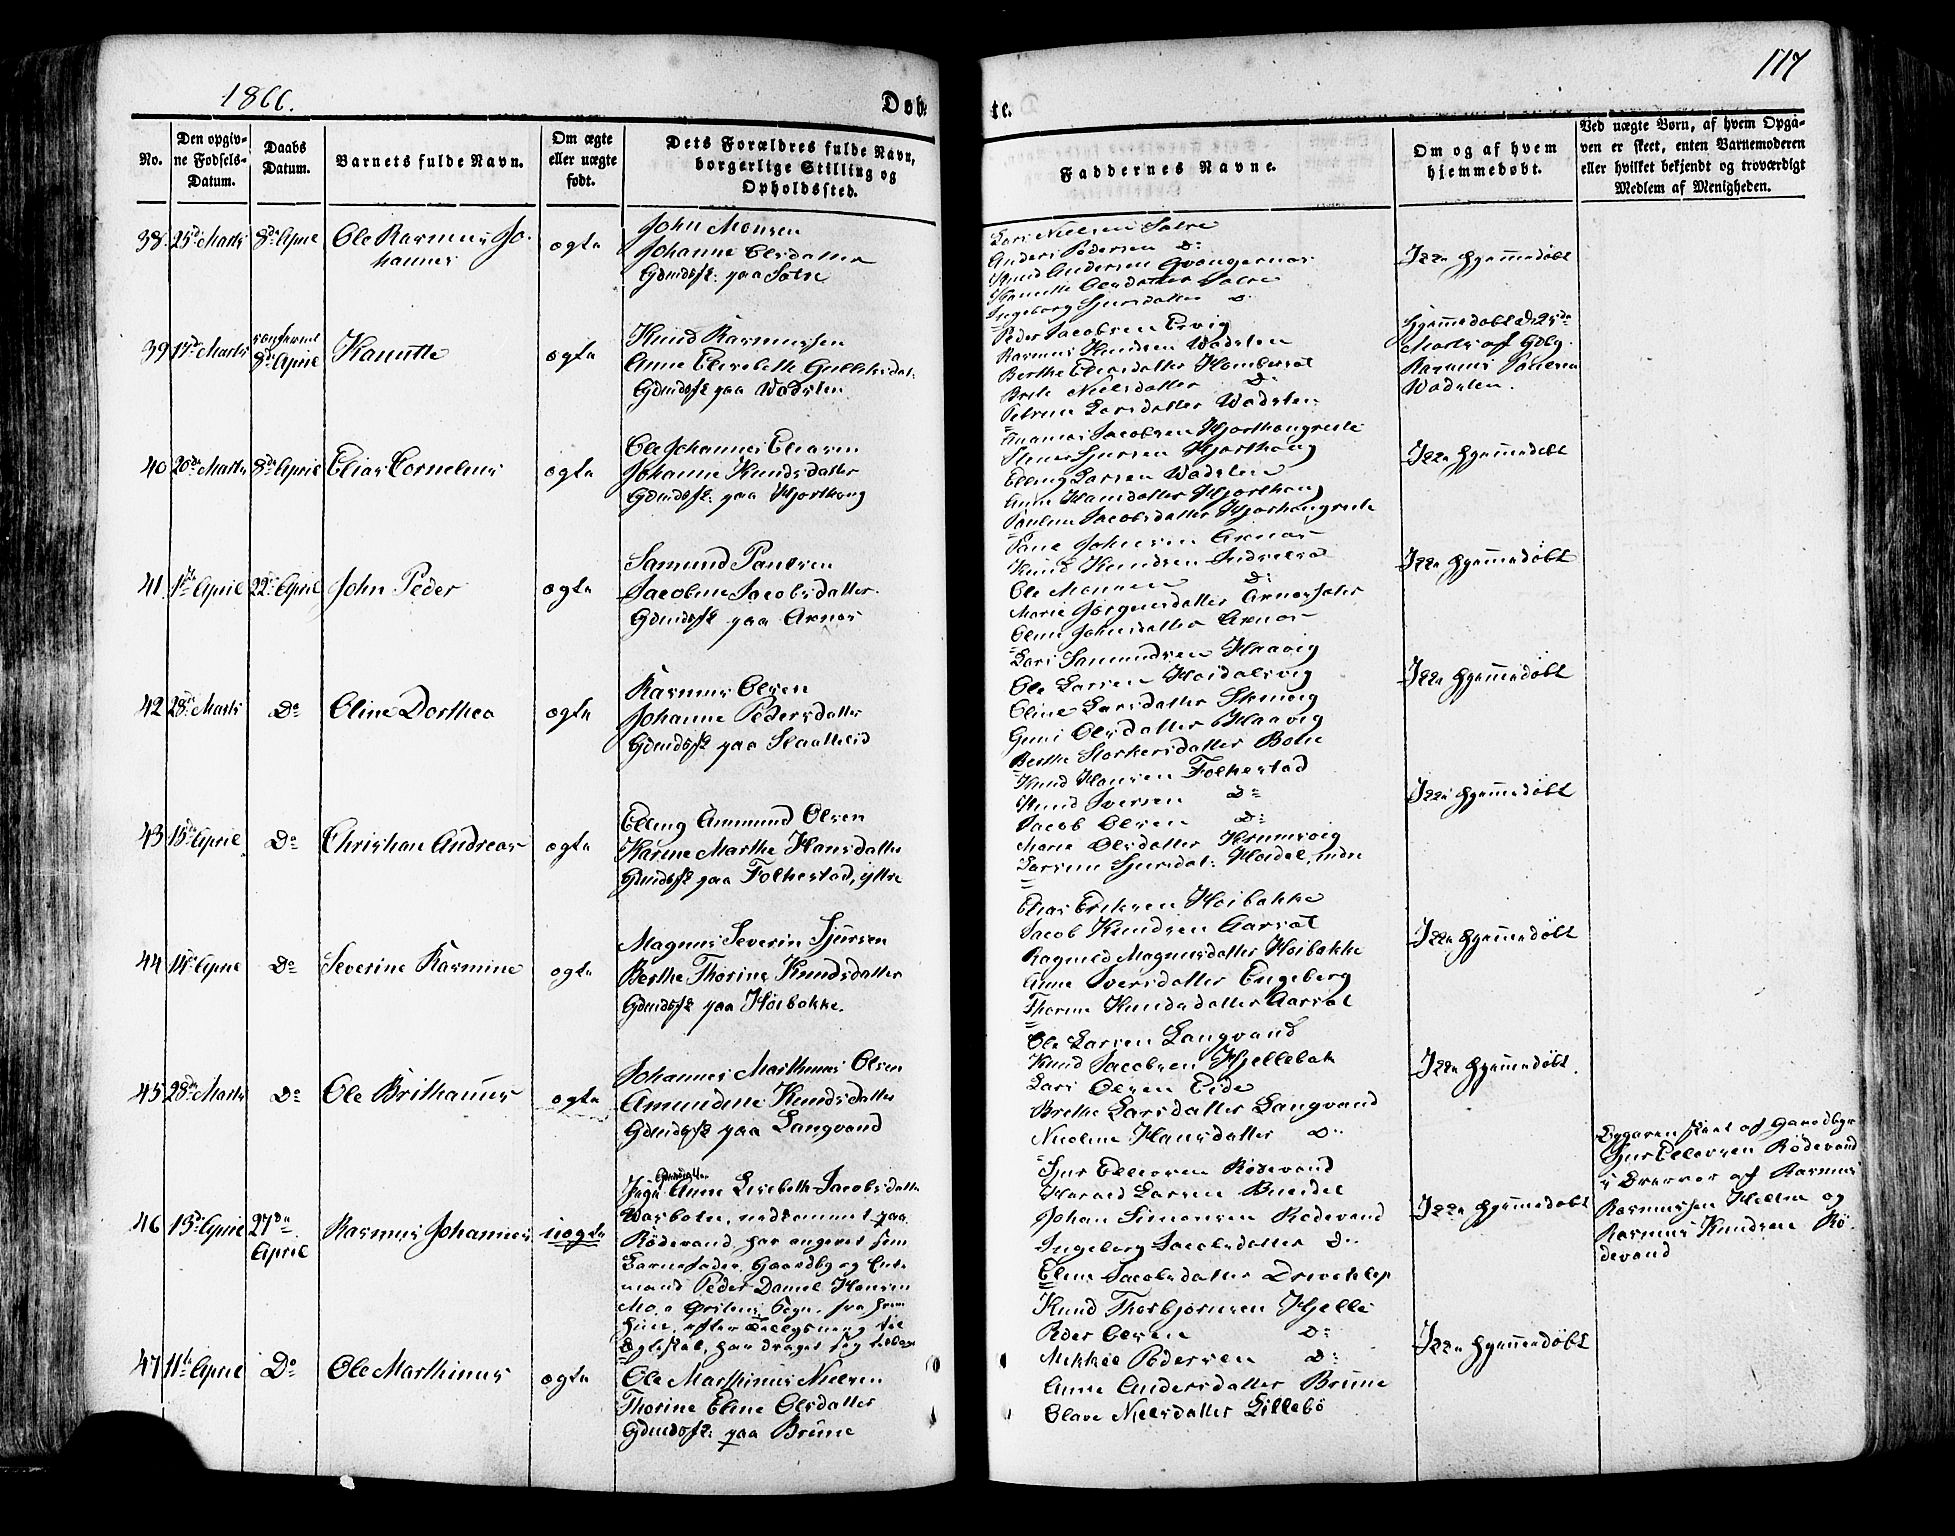 1866.
117
Døb
te.
No.
Den opgiv-
ne Fødsels-
Datum.
Daabs
Datum.
Barnets fulde Navn.
Om ægte
eller uægte
født.
Dets Forældres fulde Navn,
borgerlige Stilling og
Opholdssted.
Faddernes Navne.
Om og af hvem
hjemmedøbt.
Ved uægte Børn, af hvem Opgi-
ven er skeet, enten Barnemoderen
eller hvilket bekjendt og troværdigt
Medlem af Menigheden.
38. 25de Marts 8de April Ole Rasmus Jo-
hannes
ægte
John Monsen
Johanne Olsdatter
Gdmdsf: paa Sætre
Lars Nielsen Sætre
Anders Pedersen Do
Knud Andersen
Ingeborg Sjursdatter Do
Ikke hjemmedøbt
39 17de Marts confirmet
8de April
Hanutte
ægte
Knud Rasmussen
Anne Elisabeth Gulliksdat:
Gdmdsf paa Wadsten
Peder Jacobsen Ervig
Rasmus Knudsen Wadsten
Berthe Eliasdatter Homberset
Brite Nielsdatter Do
Petrine Larsdatter Wadsten
Hjemmedøbt d. 25de
Marts af Gdbg.
Rasmus Paulsen
Wadsten.
40 20de Marts 8de April Elias Cornelius
ægte
Ole Johannes Eliasen
Johanne Knudsdatter
Gdmdsf: paa Hjorthoug
Rasmus Jacobsen Hjorthougreite
Sjursen Hjorthoug
Elling Larsen Wadsten
Anne Hansdatter Hjorthoug
Pauline Jacobsdatter Hjorthougreite
Ikke hjemmedøbt
41. 1ste April 22de April John Peder
ægte
Samund Paulsen
Jacobine Jacobsdatter.
Gdmdsf paa Arnæs
Johnsen Arnæs
Knud Knudsen Indresæt
Ole Monsen Do
Marie Jørgensdatter Arnæssæter
Eline Johnsdatter Arnæs
Ikke hjemmedøbt
42 28de Marts Do Oline Dorthea
ægte
Rasmus Olsen
Johanne Pedersdatter
Gdmdsf paa Slaatteid
Lars Samundsen Haavig
Ole Larsen Hoidalsvig
Eline Larsdatter Stenvig
Guni Olsdatter Haavig
Berthe Storkersdatter Botne
Ikke hjemmedøbt
43 15de April Do Christian Andreas
ægte
Elling Ammund Olsen
Karine Marthe Hansdatter
Gdmdsf paa Folkestad, ytre
Knud Hansen Folkestad
Knud Iversen Do
Jacob Olsen Do
Marie Olsdatter Krumsvig
Larsine Sjursdat: Hoidal, indre
Ikke hjemmedøbt
44 14de April Do Severine Rasmine
ægte
Magnus Severin Sjursen
Berthe Thorine Knudsdatter
Gdmdsf paa Höibakke.
Elias Eriksen Höibakke
Jacob Knudsen Aarsæt
Ragnild Magnusdatter Höibakke
Anne Iversdatter Engeberg
Thorine Knudsdatter Aarsæt
Ikke hjemmedøbt
45 28de Marts Do Ole Brithanus
ægte
Johannes Marthinus Olsen
Amundine Knudsdatter
Gdmdsf paa Langvand
Ole Larsen Langvand
Knud Jacobsen Hjellebak
Lars Olsen Eide
Brethe Larsdatter Langvand
Nicoline Hansdatter Do
Ikke hjemmedøbt.
46 15de April 27de
April
Rasmus Johannes
uægte
Pige Anne Lisebeth Jacobsdatter
Warbotn, nedkommet paa
Rødevand, har angivet som
Barnefader Gaardbr og Enke-
mand Peder Daniel Hansen
Mo, Ørstens Sogn, fra hvem
hun, efter Trolysning til
Ægteskab, har draget sig tilbage
Sjur Ellevsen Rødevand
Harald Larsen Bueidet
Johan Simonsen Rødevand
Ingeborg Jacobsdatter Do
Eline Jacobsdatter Driveklep
Ikke hjemmedøbt
Opgaven skeet af Gaardbgr
Sjur Ellevsen Rødevand
i Nærvær af Rasmus
Rasmussen Hellen og
Rasmus Knudsen Rö-
devand
47 11te April Do Ole Marthinus
ægte
Ole Marthinus Nielsen
Thorine Eline Olsdatter
Gdmdsf: paa Brune
Knud Thorbjørnsen Hjelle
Peder Olsen Do
Mikkel Pedersen Do
Anne Andersdatter Brune
Olave Nielsdatter Lillebø
Ikke hjemmedøbt